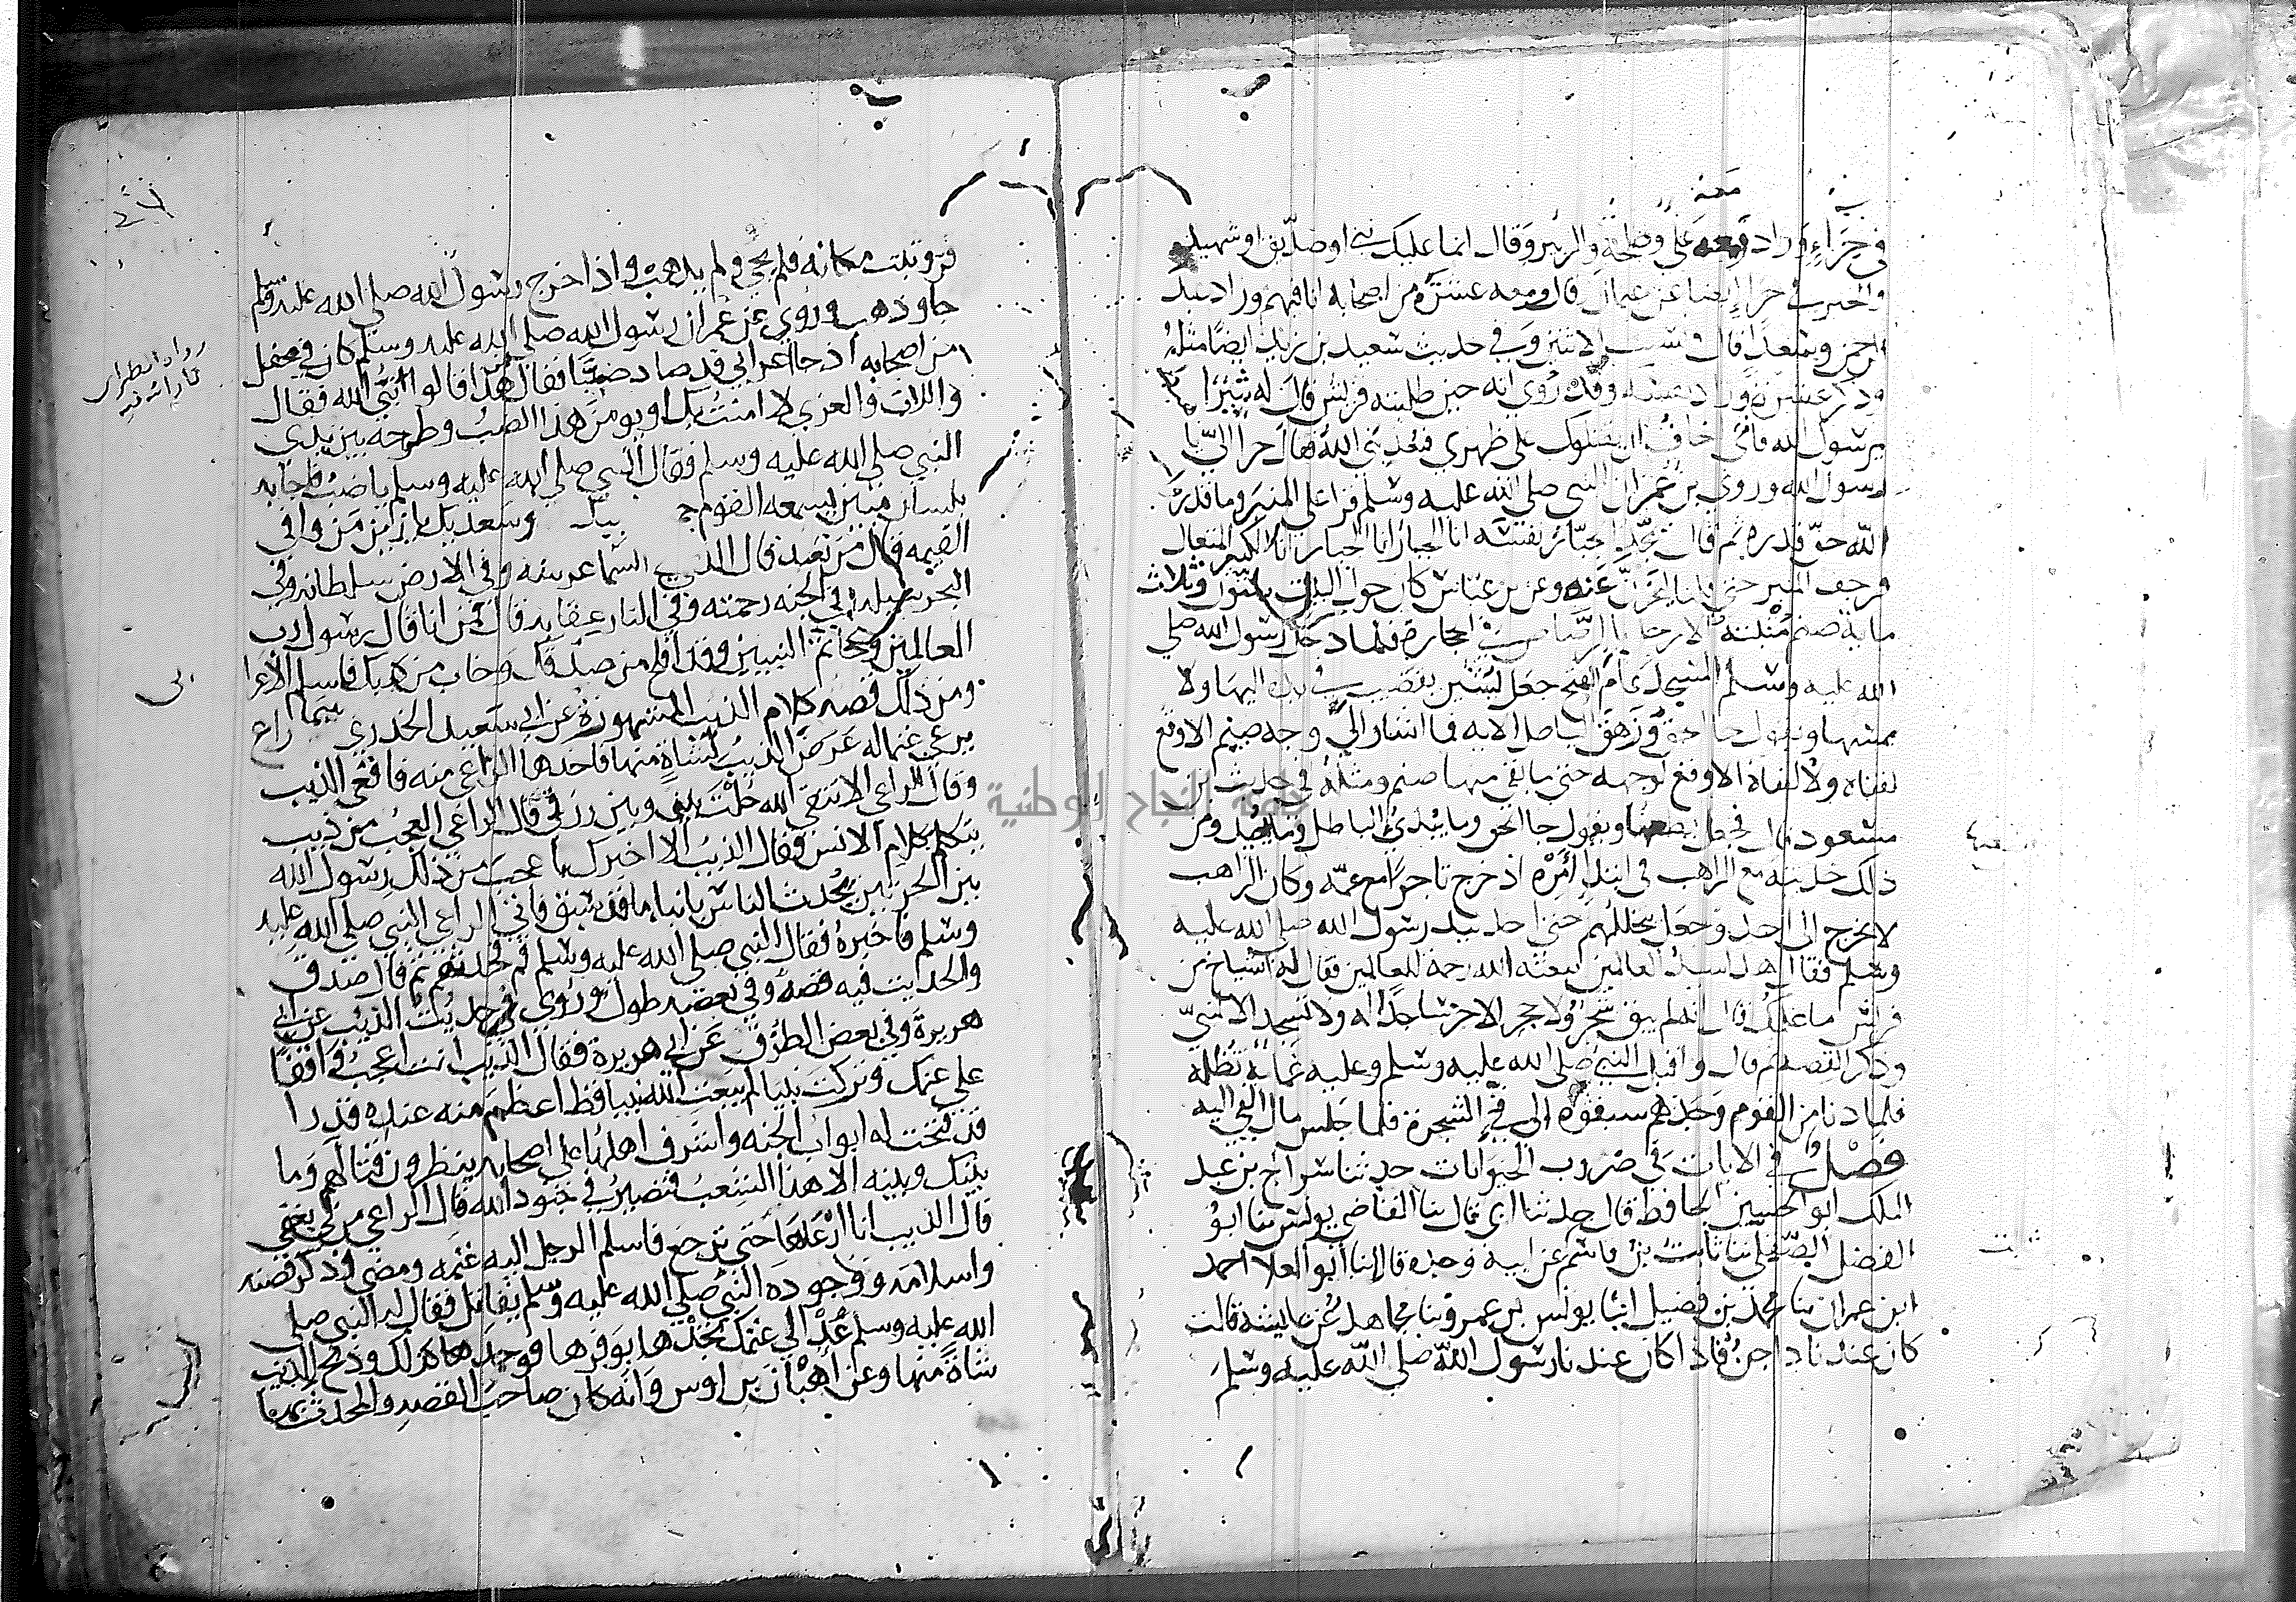 معه
في حراء وزاد ومعه علي وطلحة والزبير وقال انما عليك نبي او صديق او شهيد
والخبر في حراء ايضا عن عثمان قال ومعه عشرة من اصحابه انا فيهم وزاد عبد
الرحمن وسعدا قال ونسيت الاثنين وفي حديث سعيد بن زيد ايضا مثله
وذكر عشرة وزاد نفسه وقد روي انه حين طلبته قريش قال له ثبير اهبط
يرسول الله فاني اخاف ان يقتلوك على ظهري فيعذبني الله فقال حرا الي يا
رسول الله وروي بن عمر ان النبي صلى الله عليه وسلم قرا على المنبر وما قدروا
الله حق قدره ثم قال يمجد الجبار نفسه انا الجبار انا الجبار انا الكبير المتعال
فرجف المنبر حتى قلنا ليخرن عنه وعن بن عباس كان حول البيت ستون وثلاث
ماية صنم مثبتة الارجل بالرصاص في الحجارة فلما دخل رسول الله صلى
الله عليه وسلم المسجد عام الفتح جعل يشير بقضيب في يده اليها ولا
يمسها ويقول جا الحق وزهق الباطل الايه فما اشار الى وجه صنم الا وقع
لقفاه ولا لقفاه الا وقع لوجهه حتى ما بقي منها صنم ومثله في حديث بن
مسعود وقال فجعل يطعنها ويقول جا الحق وما يبدئ الباطل وما يعيد ومن
ذلك حديثه مع الراهب في ابتداء امره اذ خرج تاجرا مع عمه وكان الراهب
لا يخرج الى احد فجعل يتخللهم حتى اخذ بيد رسول الله صلى الله عليه
وسلم فقال هذا سيد العالمين يبعثه الله رحمة للعالمين فقال له اشياخ من
قريش ما علمك قال انه لم يبق شجر ولا حجر الا خر ساجدا له ولا تسجد الا لنبي
وذكر القصه ثم قال واقبل النبي صلى الله عليه وسلم وعليه غمامة تظله
فلما دنا من القوم وجدهم سبقوه الى فيء الشجرة فلما جلس مال الفي اليه
فصل في الايات في ضروب الحيوانات حدثنا سراج بن عبد
الملك ابو الحسين الحافظ قال حدثنا ابي قال ثنا القاضي يونس ثنا ابو
الفضل الصقلي ثنا ثابت بن قاسم عن ابيه وجده قالا ثنا ابو العلا احمد
ابن عمران ثنا محمد بن فضيل ثنا يونس بن عمرو ثنا مجاهد عن عايشة قالت
كان عندنا داجن فاذا كان عندنا رسول الله صلى الله عليه وسلم
قر وثبت مكانه فلم يجي ولم يذهب واذا خرج رسول الله صلى الله عليه وسلم
جا وذهب وروي عن عمر ان رسول الله صلى الله عليه وسلم كان في محفل
من اصحابه اذ جا اعرابي قد صاد ضبا فقال من هذا قالوا نبي الله فقال
واللات والعزى لا امنت بك او يومن هذا الضب وطرحه بين يدي
النبي صلى الله عليه وسلم فقال النبي صلى الله عليه وسلم يا ضب فاجابه
بلسان مبين يسمعه القوم جميعا لبيك وسعديك يا زين من وافى
القيمه قال من تعبد قال الذي في السما عرشه وفي الارض سلطانه وفي
البحر سبيله وفي الجنه رحمته وفي النار عقابه قال فمن انا قال رسول رب
العالمين وخاتم النبيين وقد افلح من صدقك وخاب من كذبك فاسلم الاعرا
بي
ومن ذلك قصة كلام الذيب المشهورة عن ابي سعيد الخدري بينما راع
يرعى غنما له عرض الذيب لشاة منها فاخذها الراعي منه فاقعى الذيب
وقال للراعي الا تتقي الله حلت بيني وبين رزقي قال الراعي العجب من ذيب
يتكلم بكلام الانس فقال الذيب الا اخبرك باعجب من ذلك رسول الله
بين الحرتين يحدث الناس بانباء ما قد سبق فاتى الراعي النبي صلى الله عليه
وسلم فاخبره فقال النبي صلى الله عليه وسلم قم فحدثهم ثم قال صدق
والحديث فيه قصه وفي بعضه طول وروى حديث الذيب عن ابي
هريرة وفي بعض الطرق عن ابي هريرة فقال الذيب انت اعجب واقفا
على غنمك وتركت نبيا لم يبعث الله نبيا قط اعظم منه عنده قدرا
قد فتحت له ابواب الجنه واشرف اهلها على اصحابه ينظرون قتالهم وما
بينك وبينه الا هذا الشعب فتصير في جنود الله قال الراعي من لي بغنمي
قال الذيب انا ارعاها حتى ترجع فاسلم الرجل اليه غنمه ومضى وذكر قصته
واسلامه ووجوده النبي صلى الله عليه وسلم يقاتل فقال له النبي صلى
الله عليه وسلم عد الى غنمك تجدها بوفرها فوجدها كذلك وذبح للذيب
شاة منها وعن اهبان بن اوس وانه كان صاحب القصه والمحدث بها
جامعة النجاح الوطنية